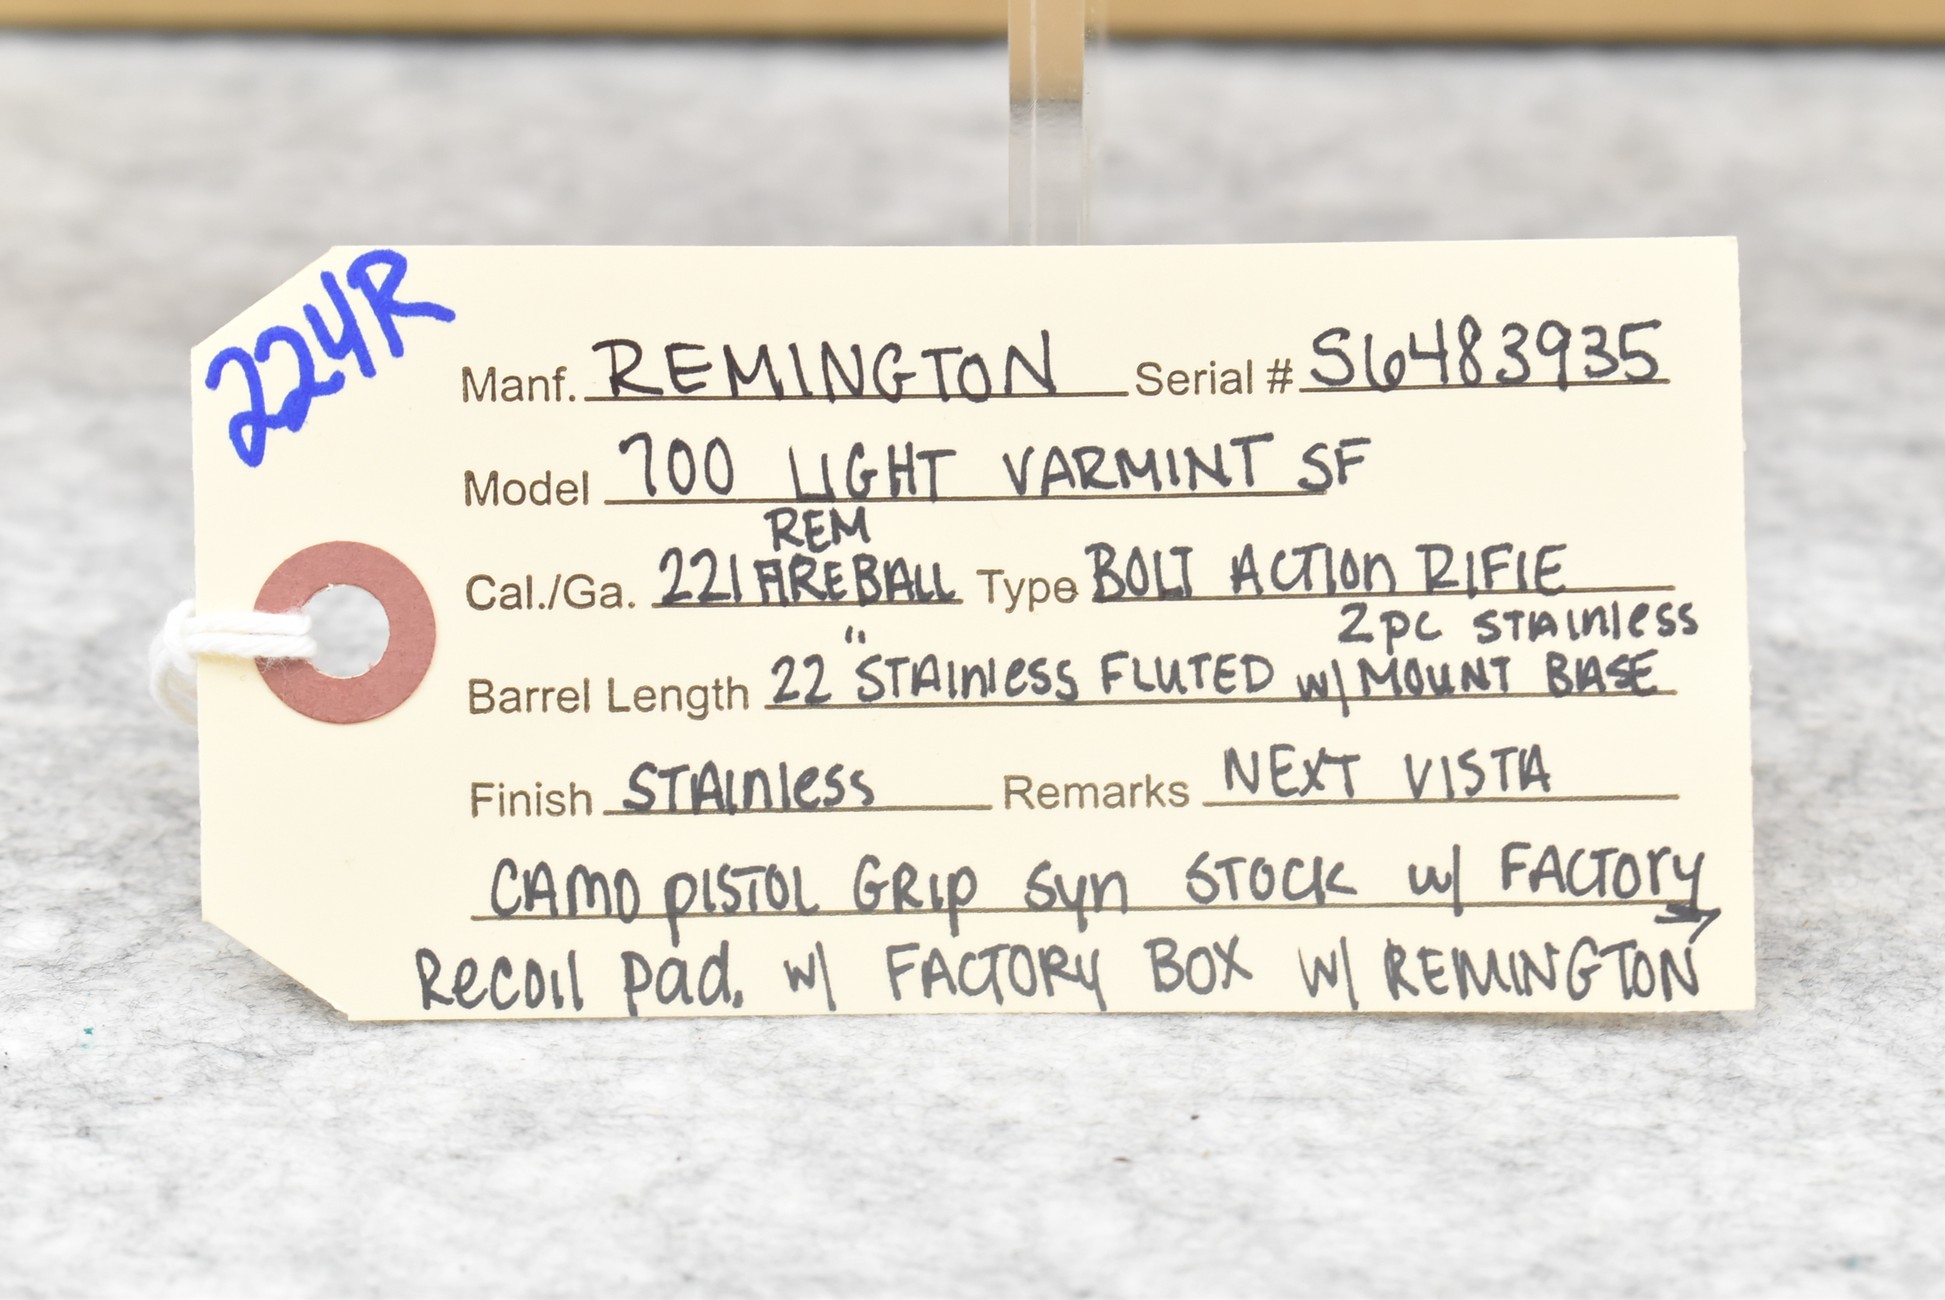 224R
Manf. REMINGTON Serial # S6483935
Model 700 LIGHT VARMINT SF
REM
Cal./Ga. 221 FIREBALL Type BOLT ACTION RIFLE
2pc STAINless
Barrel Length 22" STAINless FLUTED w/ MOUNT BASE
Finish STAINless Remarks NEXT VISTA
CAMO PISTOL GRIP Syn STOCK w/ FACTORY
Recoil pad. w/ FACTORY BOX w/ REMINGTON →